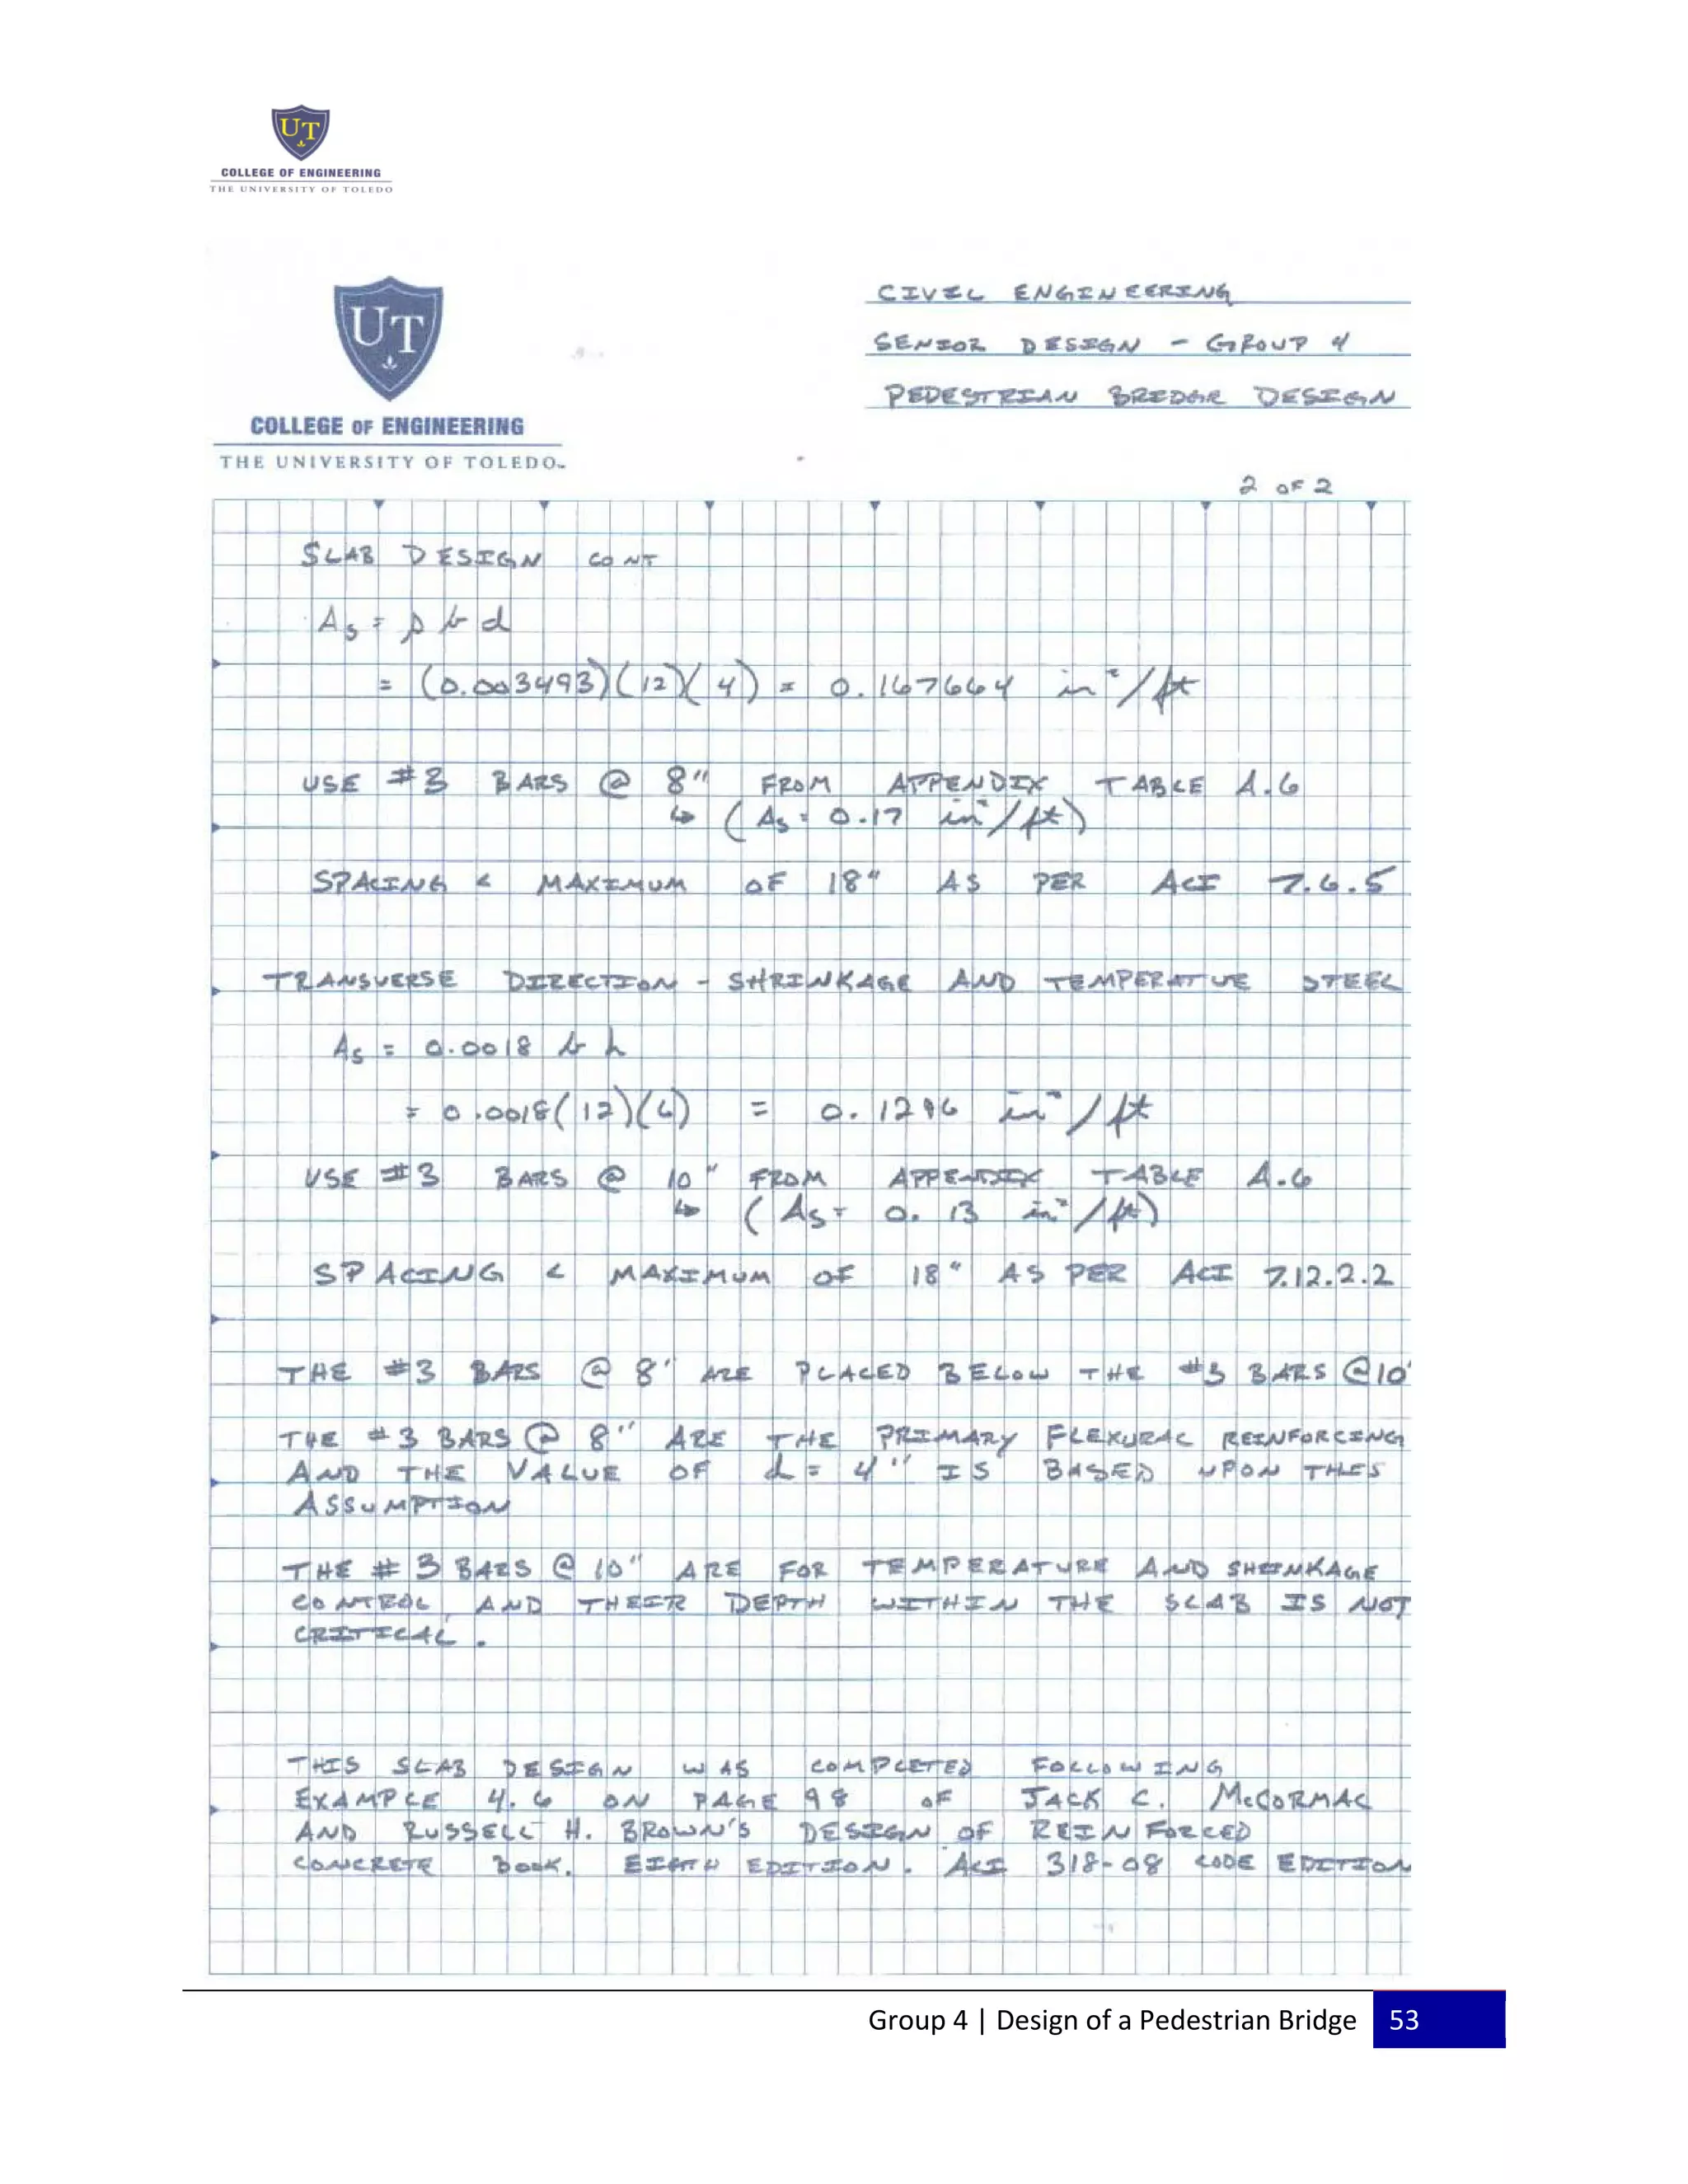 UT
COLLEGE OF ENGINEERING
THE UNIVERSITY OF TOLEDO
UT
COLLEGE OF ENGINEERING
THE UNIVERSITY OF TOLEDO
CIVIL ENGINEERING
SENIOR DESIGN - GROUP 4
PEDESTRIAN BRIDGE DESIGN
2 OF 2
SLAB DESIGN CONT
As = ρ b d
= (0.003493)(12)(4) = 0.167664 in²/ft
USE #3 BARS @ 8" FROM APPENDIX TABLE A.6
↳ (As = 0.17 in²/ft)
SPACING < MAXIMUM OF 18" AS PER ACI 7.6.5
TRANSVERSE DIRECTION - SHRINKAGE AND TEMPERATUE STEEL
As = 0.0018 b h
= 0.0018(12)(6) = 0.1296 in²/ft
USE #3 BARS @ 10" FROM APPENDIX TABLE A.6
↳ (As = 0.13 in²/ft)
SPACING < MAXIMUM OF 18" AS PER ACI 7.12.2.2
THE #3 BARS @ 8" ARE PLACED BELOW THE #3 BARS @10'
THE #3 BARS @ 8" ARE THE PRIMARY FLEXURAL REINFORCING
AND THE VALUE OF d = 4" IS BASED UPON THIS
ASSUMPTION
THE #3 BARS @ 10" ARE FOR TEMPERATURE AND SHRINKAGE
CONTROL, AND THEIR DEPTH WITHIN THE SLAB IS NOT
CRITICAL.
THIS SLAB DESIGN WAS COMPLETED FOLLOWING
EXAMPLE 4.6 ON PAGE 98 OF JACK C. McCORMAC
AND RUSSELL H. BROWN'S DESIGN OF REINFORCED
CONCRETE BOOK. EIGTH EDITION. ACI 318-08 CODE EDITION
Group 4 | Design of a Pedestrian Bridge 53